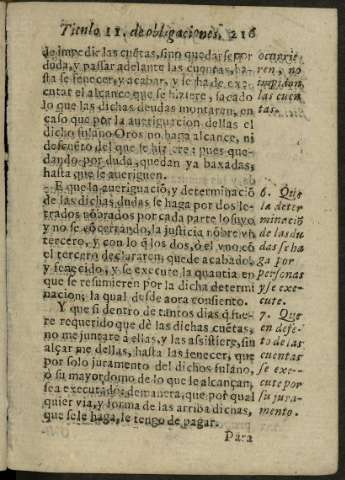 Titulo 11. de obligaciones. 216
de impedir las cuẽtas, sino quedarse por
duda, y passar adelante las cuentas, ha-
sta se fenecer, y acabar, y se ha de exe-
cutar el alcance que se hiziere, sacado
lo que las dichas deudas montaren, en
caso que por la aueriguacion dellas el
dicho fulano Oros no haga alcance, ni
descuẽto del que se hiziere: pues que-
dando por duda, quedan ya baxadas,
hasta que se aueriguen.
E que la aueriguaciõ, y determinaciõ
de las dichas dudas se haga por dos le-
trados nõbrados por cada parte lo suyo,
y no se cõcertando, la justicia nõbre vn
tercero, y con lo q̃ los dos, ò el vno cõ
el tercero declararem, quede acabado,
y fenecido, y se execute la quantia en
que se resumieren por la dicha determi
nacion, la qual desde aora consiento.
Y que si dentro de tantos dias q̃ fue-
re requerido que dè las dichas cuẽtas,
no me juntare à ellas, y las assistiere, sin
alçar me dellas, hasta las fenecer, que
por solo juramento del dicho fulano,
ò su mayordomo de lo que le alcançan,
sea executado: demanera, que por qual
quier via, y forma de las arriba dichas,
que se le haga, le tengo de pagar.
Para
ocurrie-
ren, no
impidan
las cuen
tas.
6. Que
la deter
minaciõ
de las du
das se ha
ga por
personas
y se exe-
cute.
7. Que
en defe-
to de las
cuentas
se exe-
cute por
su jura-
mento.